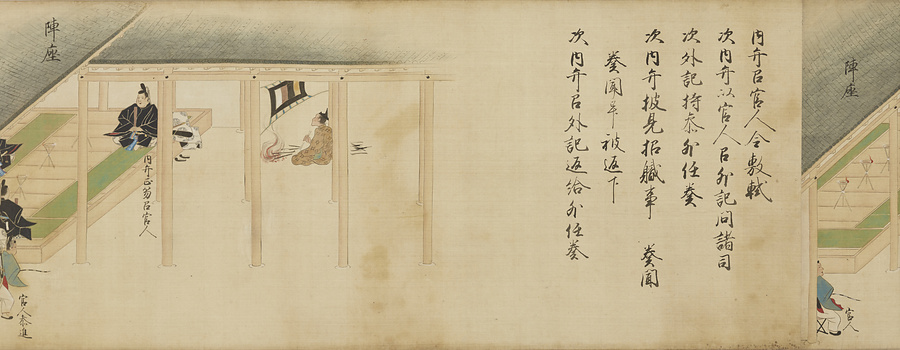 陣座
内弁召官人令敷軾
次内弁以官人召外記問諸司
次外記持参外任奏
次内弁披見招職事 奏聞
奏聞畢被返下
次内弁召外記返給外任奏
内弁正笏召官人
陣座
官人参進
官人